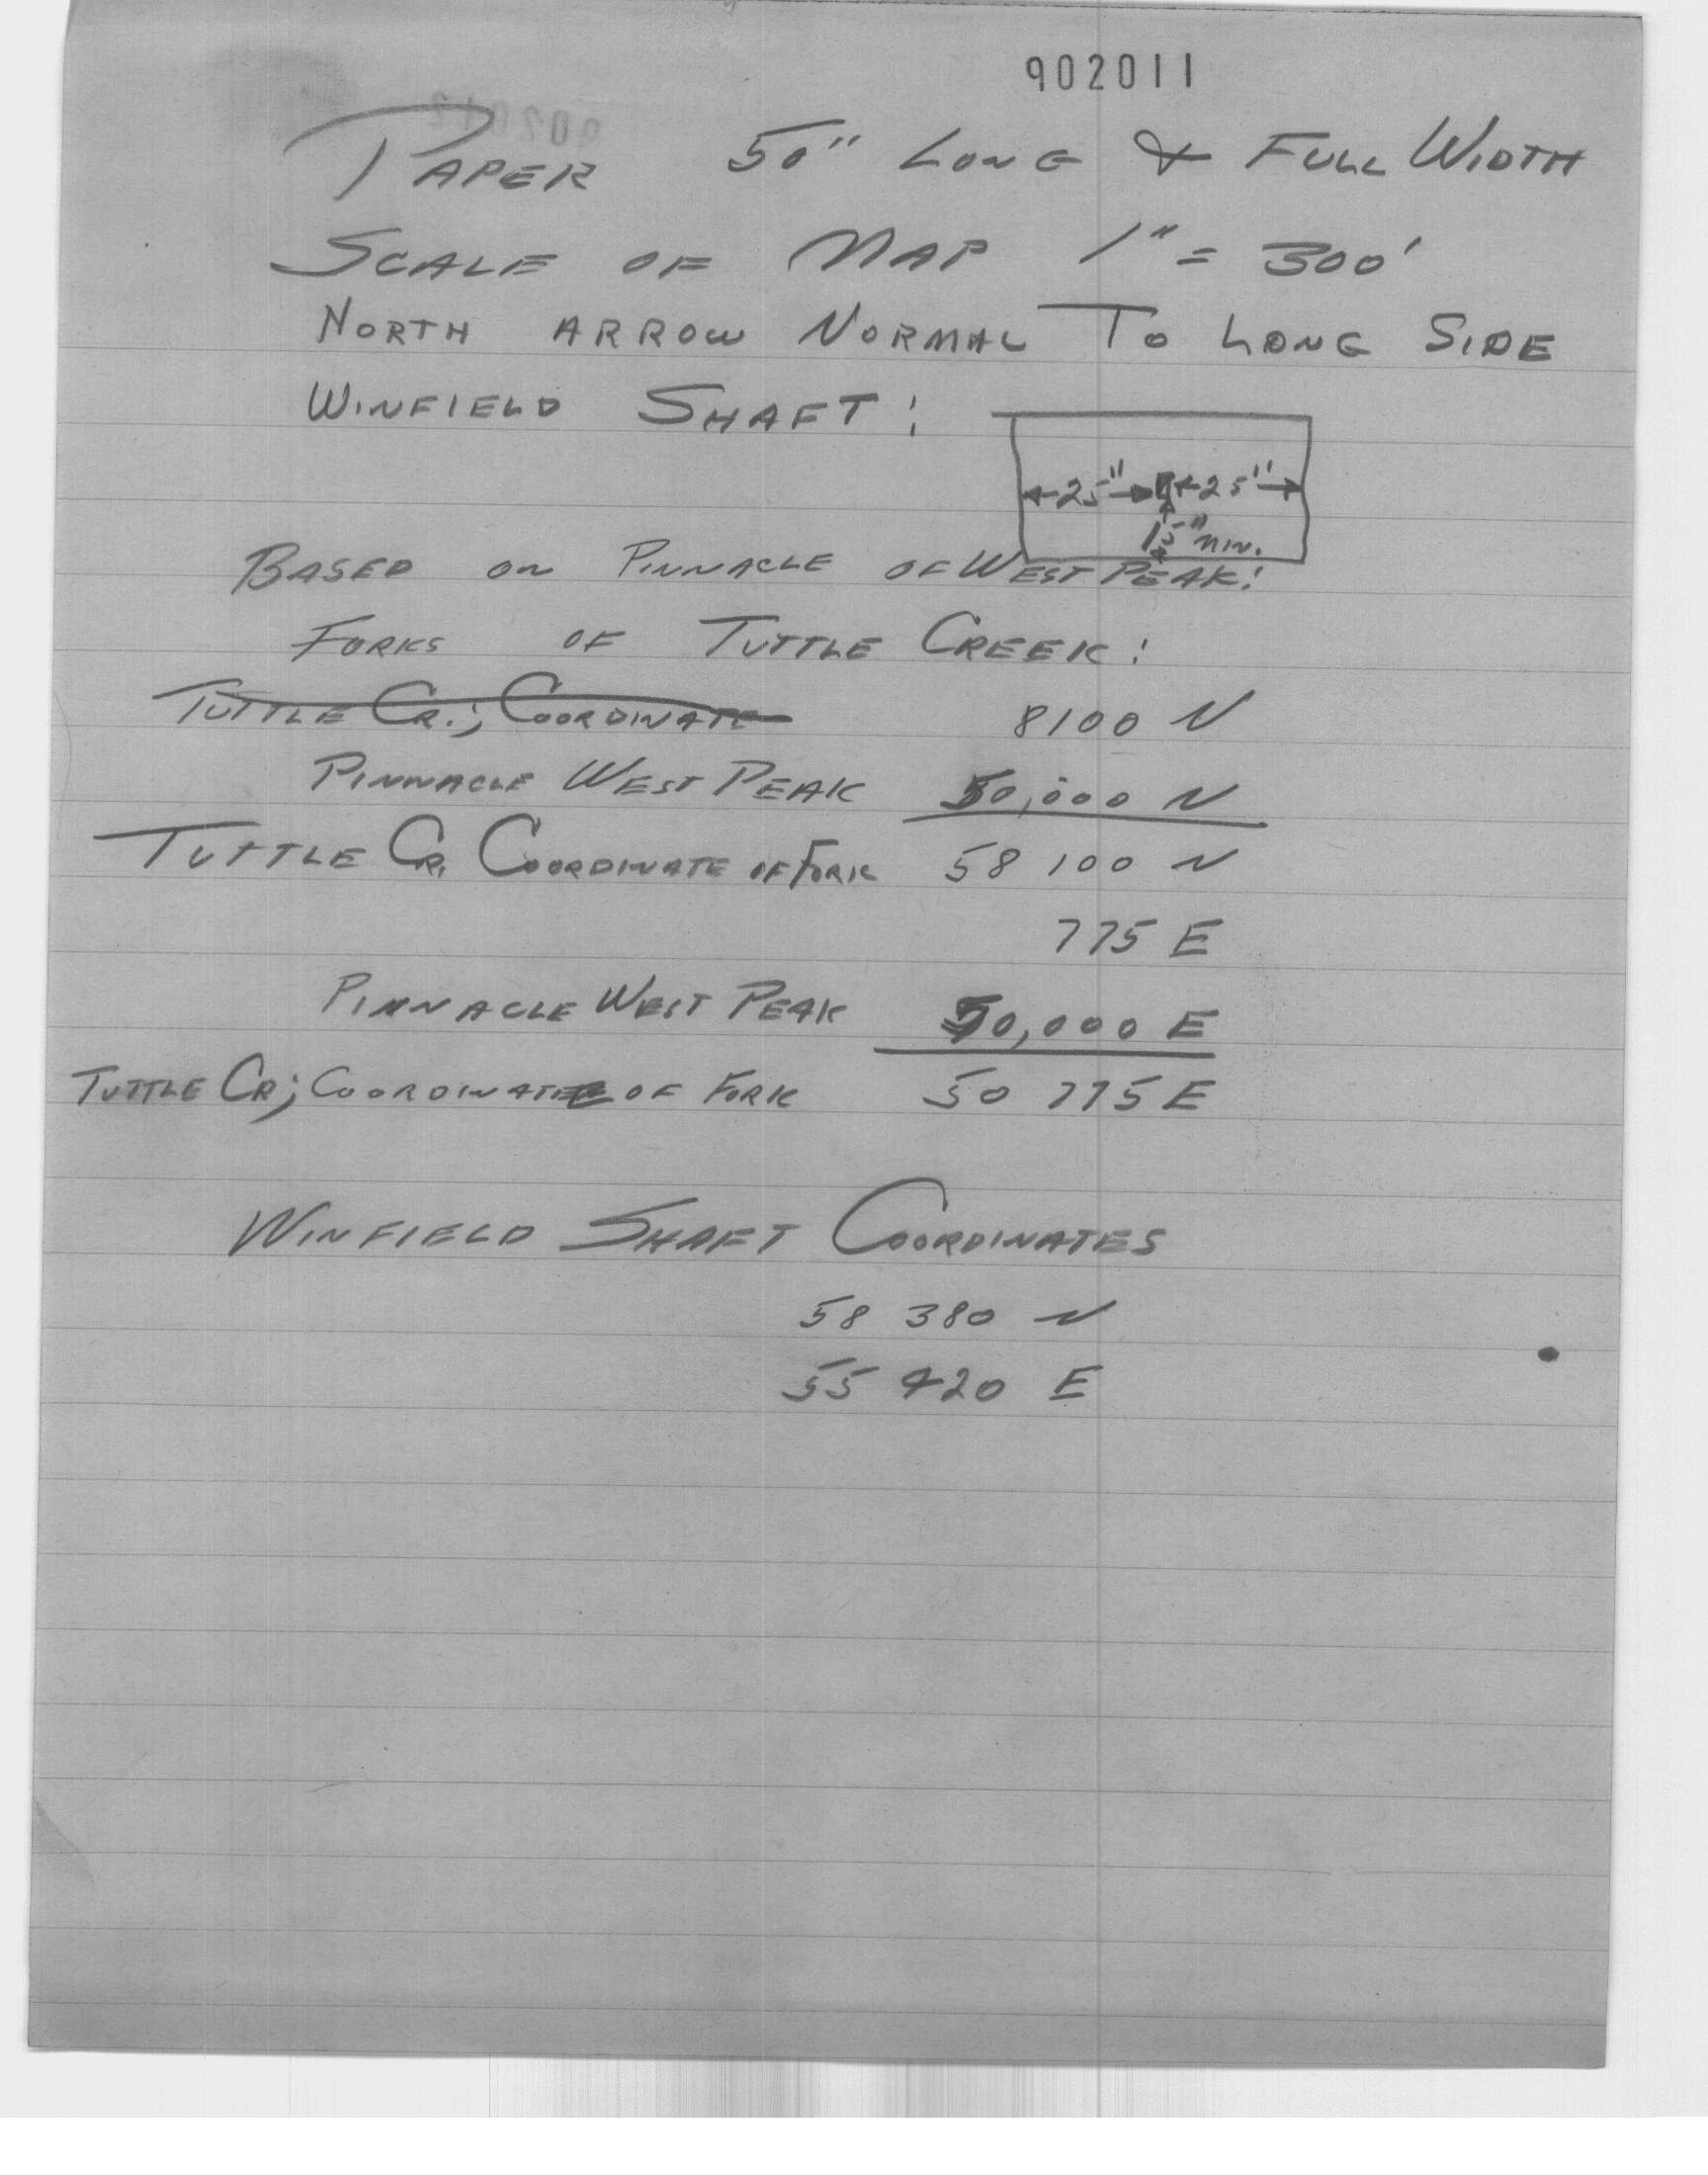 902011
PAPER 50" LONG & FULL WIDTH
SCALE OF MAP 1" = 300'
NORTH ARROW NORMAL TO LONG SIDE
WINFIELD SHAFT:
25" 25"
15" MIN.
BASED ON PINNACLE OF WEST PEAK:
FORKS OF TUTTLE CREEK:
TUTTLE CR.; COORDINATE 8100 N
PINNACLE WEST PEAK 50,000 N
TUTTLE CR. COORDINATE OF FORK 58 100 N
775 E
PINNACLE WEST PEAK 50,000 E
TUTTLE CR; COORDINATE OF FORK 50 775 E
WINFIELD SHAFT COORDINATES
58 380 N
55 420 E